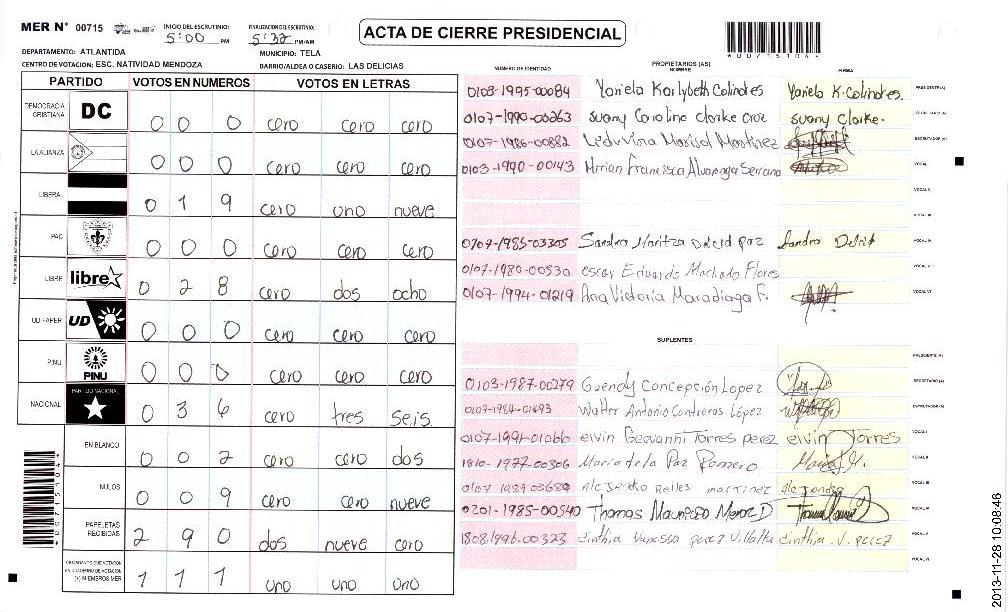 MER N° 00715
INICIO DEL ESCRUTINIO: 5:00 PM
FINALIZACION DEL ESCRUTINIO: 5:32 PM/AM
ACTA DE CIERRE PRESIDENCIAL
DEPARTAMENTO: ATLANTIDA
MUNICIPIO: TELA
CENTRO DE VOTACION: ESC. NATIVIDAD MENDOZA
BARRIO/ALDEA O CASERIO: LAS DELICIAS
PARTIDO VOTOS EN NUMEROS VOTOS EN LETRAS
DEMOCRACIA CRISTIANA DC 0 0 0 cero cero cero
LA ALIANZA 0 0 0 cero cero cero
LIBERAL 0 1 9 cero uno nueve
PAC 0 0 0 cero cero cero
LIBRE libre 0 2 8 cero dos ocho
UD-FAPER UD 0 0 0 cero cero cero
PINU PINU 0 0 0 cero cero cero
NACIONAL PARTIDO NACIONAL 0 3 6 cero tres seis
EN BLANCO 0 0 2 cero cero dos
NULOS 0 0 9 cero cero nueve
PAPELETAS RECIBIDAS 2 9 0 dos nueve cero
CIUDADANOS QUE VOTARON EN CUADERNO DE VOTACION (+) MIEMBROS MER 1 1 1 uno uno uno
PROPIETARIOS (AS)
NUMERO DE IDENTIDAD NOMBRE FIRMA
0103-1995-00084 Yoniela Karlybeth Colindres Yoniela K. Colindres. PRESIDENTE (A)
0107-1990-00263 Suany Carolina Clarke Cruz Suany Clarke. SECRETARIO (A)
0107-1986-00882 Marisol Martinez ESCRUTADOR (A)
0103-1990-00143 Mirian Francisca Alvarenga Serrano VOCAL I
VOCAL II
VOCAL III
0107-1985-03305 Sandra Maritza David Paz Sandra David VOCAL IV
0107-1980-00530 Oscar Eduardo Machado Flores VOCAL V
0107-1994-01219 Ana Victoria Maradiaga F. VOCAL VI
SUPLENTES
PRESIDENTE (A)
0103-1987-00279 Guendy Concepción Lopez SECRETARIO (A)
0107-1984-01493 Walter Antonio Contreras López ESCRUTADOR (A)
0107-1991-01066 elvin Geovanni Torres perez elvin Torres VOCAL I
1810-1977-00306 Maria de la Paz Romero VOCAL II
0107 1989 03680 Alejandro Relles martinez Alejandro VOCAL III
0201-1985-00540 Thomas Mauricio VOCAL IV
1808 1996-00323 Cinthia Vanessa perez Villalta Cinthia . V. perez VOCAL V
VOCAL VI
2013-11-28 10:08:46